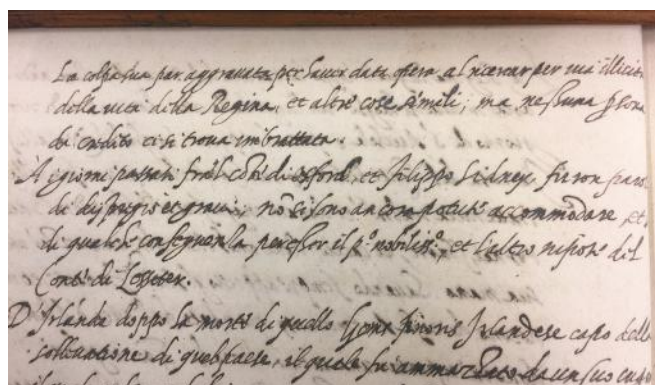 La colpa sua par aggravata per haver data opera al ricercar per via illicita
della vita della Regina, et altre cose simili; ma nessuna p̱sona
di credito ci si trova imbrattata.
A i giorni passati fra'l Conte di Oxford, et Filippo Sidney furon parole
di dispregio et gravi, nõ si sono ancora potute accommodare, et
di qualche consequenza per esser il p.º nobiliss.º, et l'altro nipote del
Conte di Lester.
D'Irlanda doppo la morte di quello Irlandese capo della
sollevatione di quel paese, il quale fu ammazzato da un suo